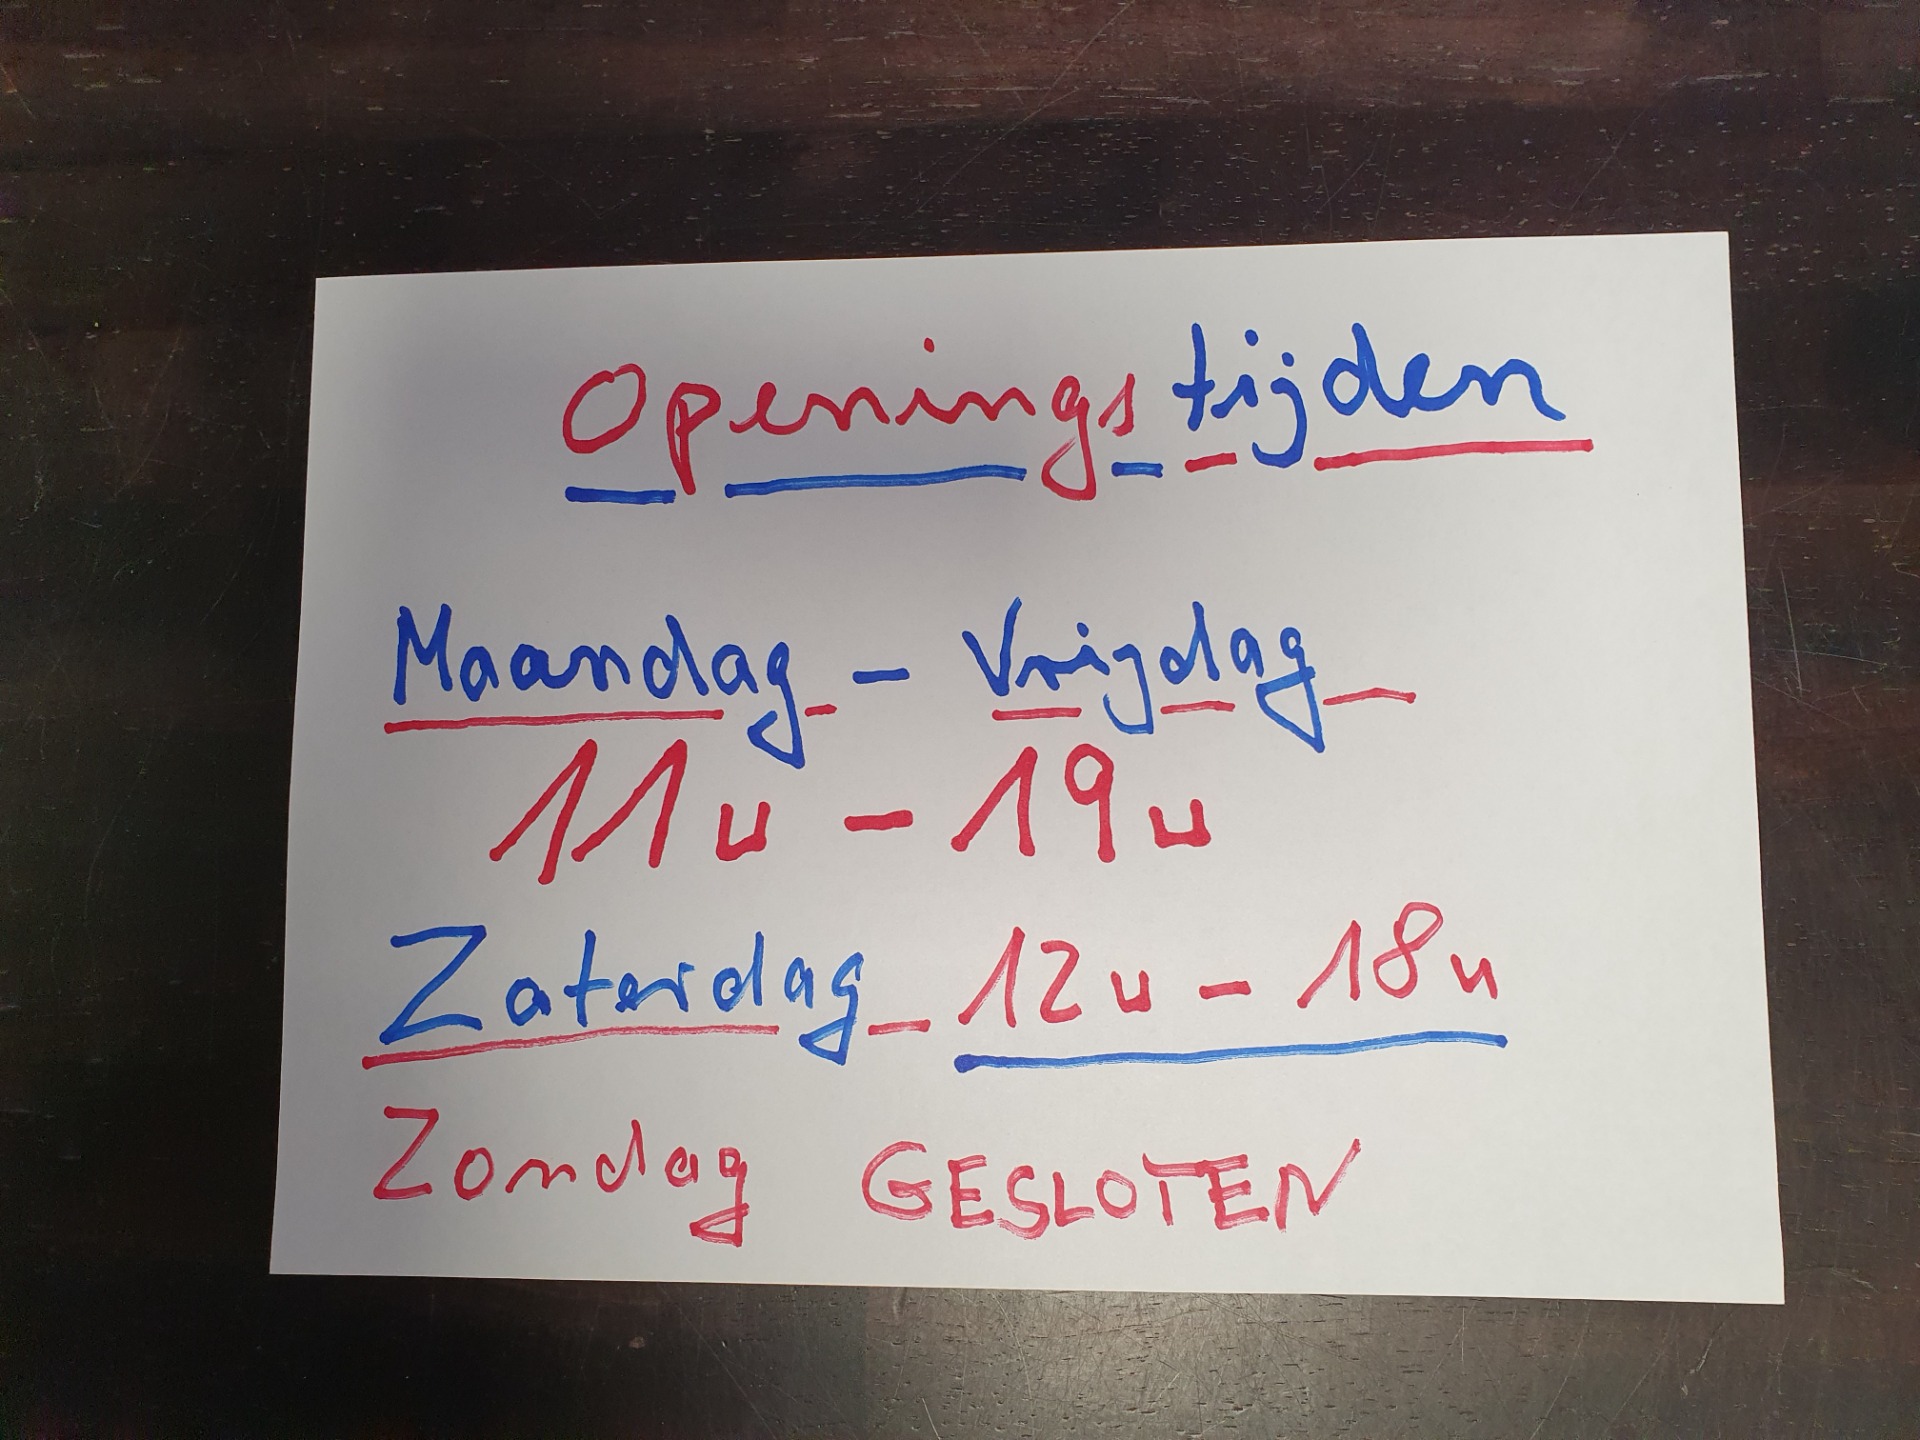 Openingstijden
Maandag - Vrijdag
11u - 19u
Zaterdag 12u - 18u
Zondag GESLOTEN